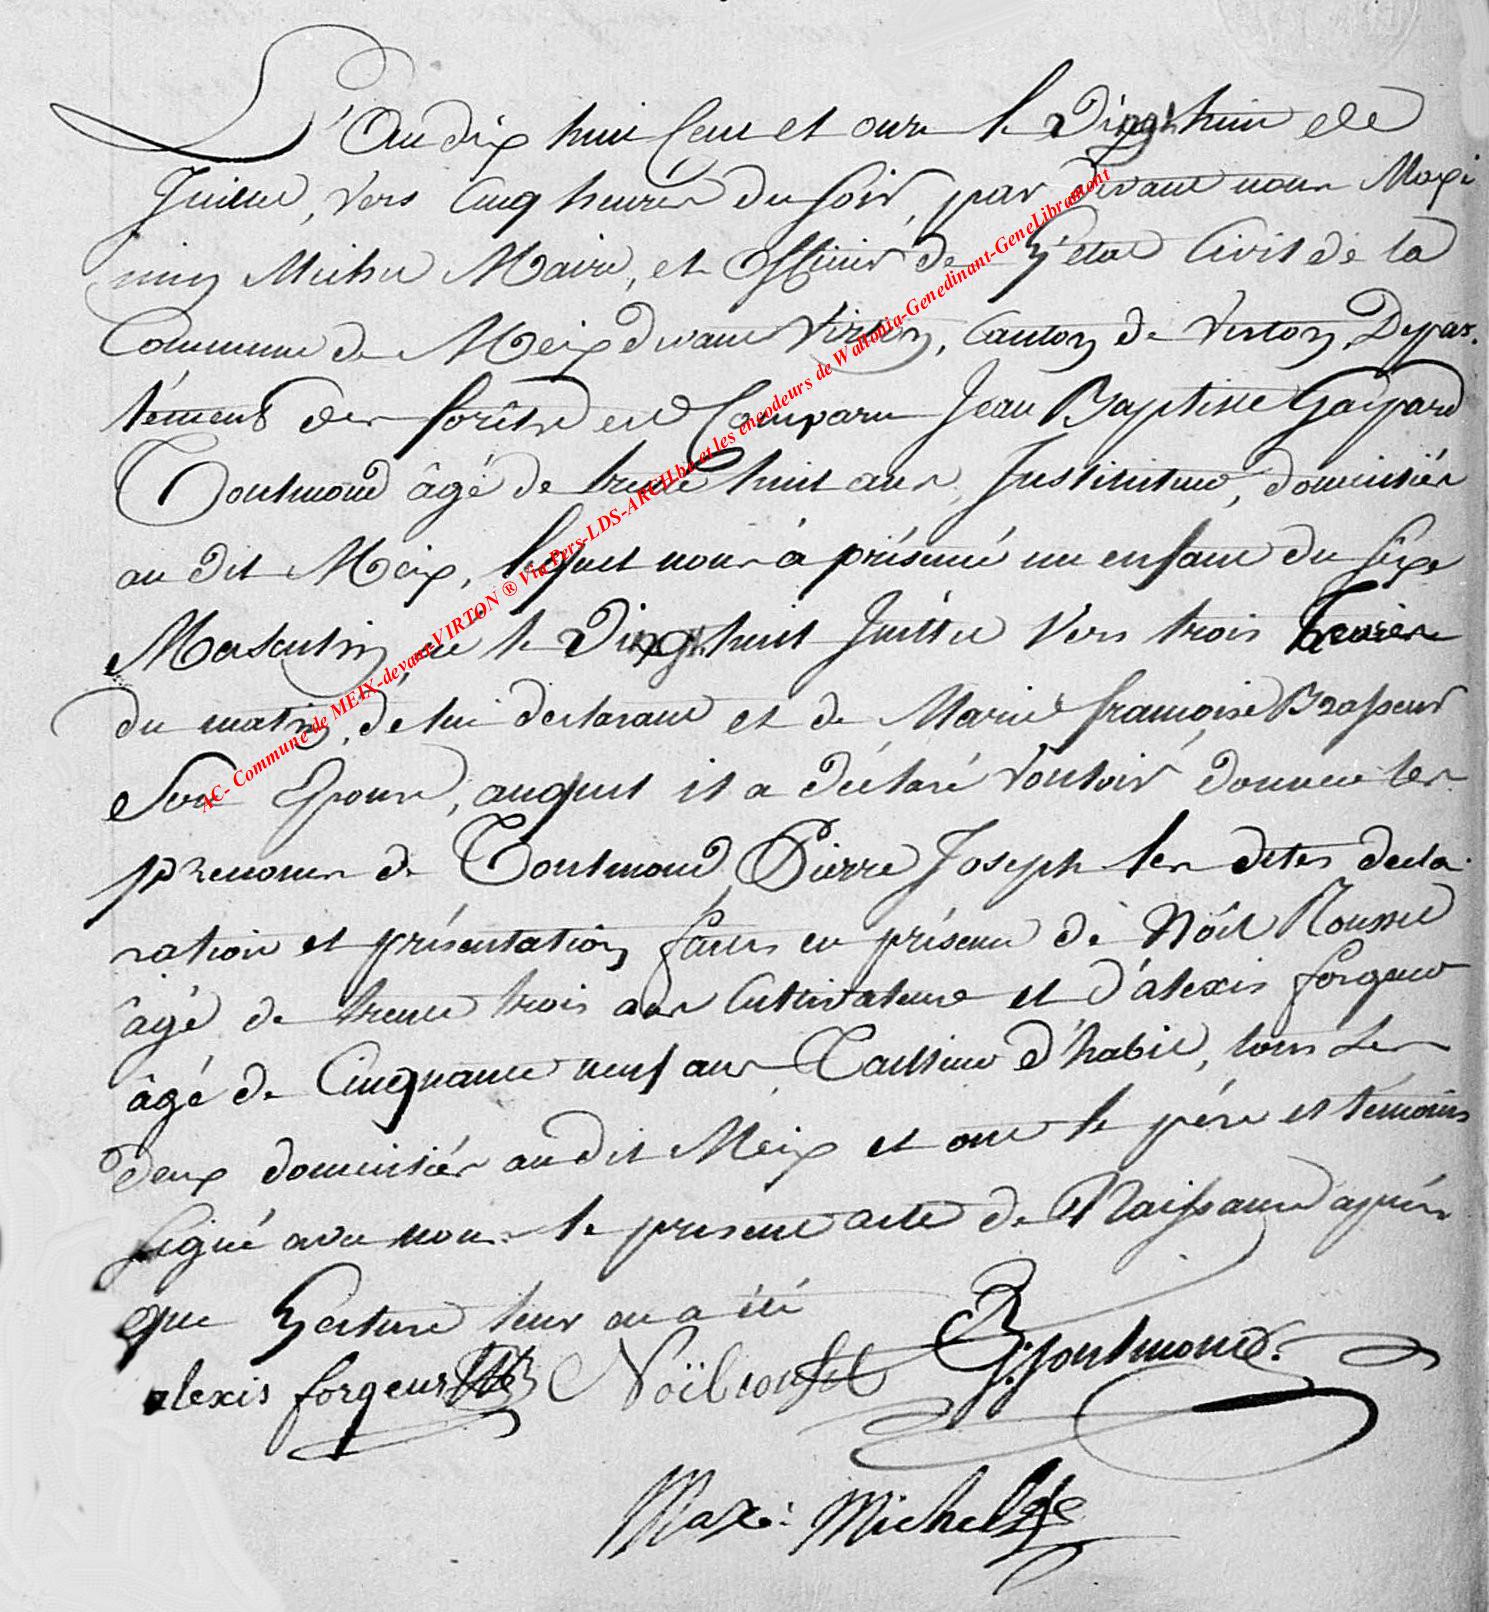 L'An dix huit Cent et onze le Vingt huit de
Juillet, vers Cinq heures du soir, par devant nous Maxi
min Michel Maire, et Officier de l'état Civil de la
Commune de Meix devant Virton, Canton de Virton, Depar-
tement des forêts est Comparu Jean Baptiste Gaspard
Toutmond âgé de trente huit ans, Instituteur, domicilié
au dit Meix, lequel nous à présenté un enfant du sexe
Masculin né le Vingt huit Juillet vers trois heures
du matin, de lui declarant et de Marie françoise Brasseur
Son Epouse, auquel il a déclaré Vouloir donner les
prenoms de Toutmond, Pierre Joseph les dites decla-
ration et présentation faites en présence de Nôel Roussel
âgé de trente trois ans Cultivateur et d'alexis forgeur
âgé de Cinquante neuf ans Tailleur d'habit, tous les
deux domiciliés audit Meix et ont le père et témoins
signé avec nous le present acte de Naissance après
que lecture leur en a été
alexis forgeur Noël rousel Toutmond.
Max: Michel
AC- Commune de MEIX-devant-VIRTON ® Via Pers-LDS-ARCH.be et les encodeurs de Wallonia-Genedinant-GeneLibramont